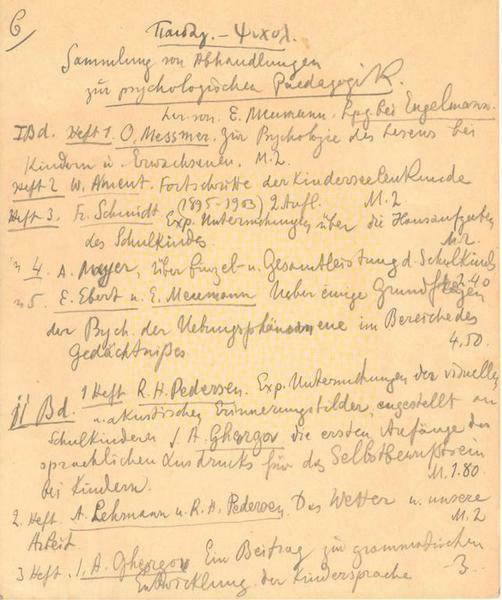 6
Παιδαγ. - Ψυχολ.
Sammlung von Abhandlungen
zur psychologischen Paedagogik.
her. von E. Meumann. Lpg. bei Engelmann.
I Bd. Heft 1. O. Messmer. Zur Psychologie des Lesens bei
Kindern u. Erwachsenen. M. 2.
Heft 2 W. Ament. Fortschritte der Kinderseelenkunde
(1895-1903) 2 Aufl. M. 2
Heft 3. Fr. Schmidt. Exp. Untersuchungen über die Hausaufgaben
des Schulkindes. M.
" 4. A. Mayer, über Einzel- u. Gesamtleistung d. Schulkind
2.40
" 5. E. Ebert u. E. Meumann Ueber einige Grundfragen
der Psych. der Uebungsphänomene im Bereiche des
Gedächtnißes 4,50.
II Bd. 1 Heft R. H. Pedersen. Exp. Untersuchungen der visuellen
u. akustischen Erinnerungsbilder, angestellt an
Schulkindern J. A. Ghergov die ersten Anfänge des
sprachlichen Ausdrucks für das Selbstbewußtsein
bei Kindern. M. 1.80
2. Heft A. Lehmann u. R. H. Pedersen. Das Wetter u. unsere
Arbeit. M. 2
3 Heft. J. A. Ghergov Ein Beitrag zur grammatischen
Entwicklung der Kindersprache - 3 -